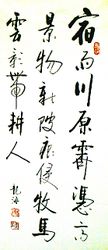 宿雨川原霽憑高
景物新陂痕侵牧馬
雲影帶耕人